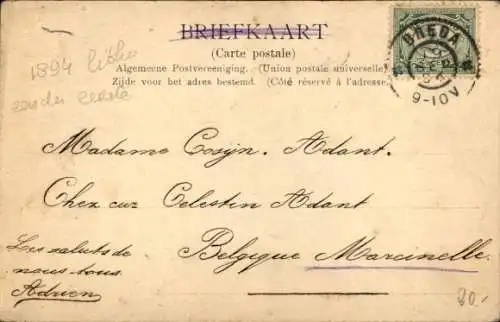 BRIEFKAART
(Carte postale)
Algemeene Postvereeniging. (Union postale universelle)
Zijde voor het adres bestemd. (Côté réservé à l'adresse.)
1894 litho
BREDA
9-10V
Madame Cosijn. Adant.
Chez eur Celestin Adant
Belgique Marcinelle.
Les saluts de
nous tous
Adrien
30.-